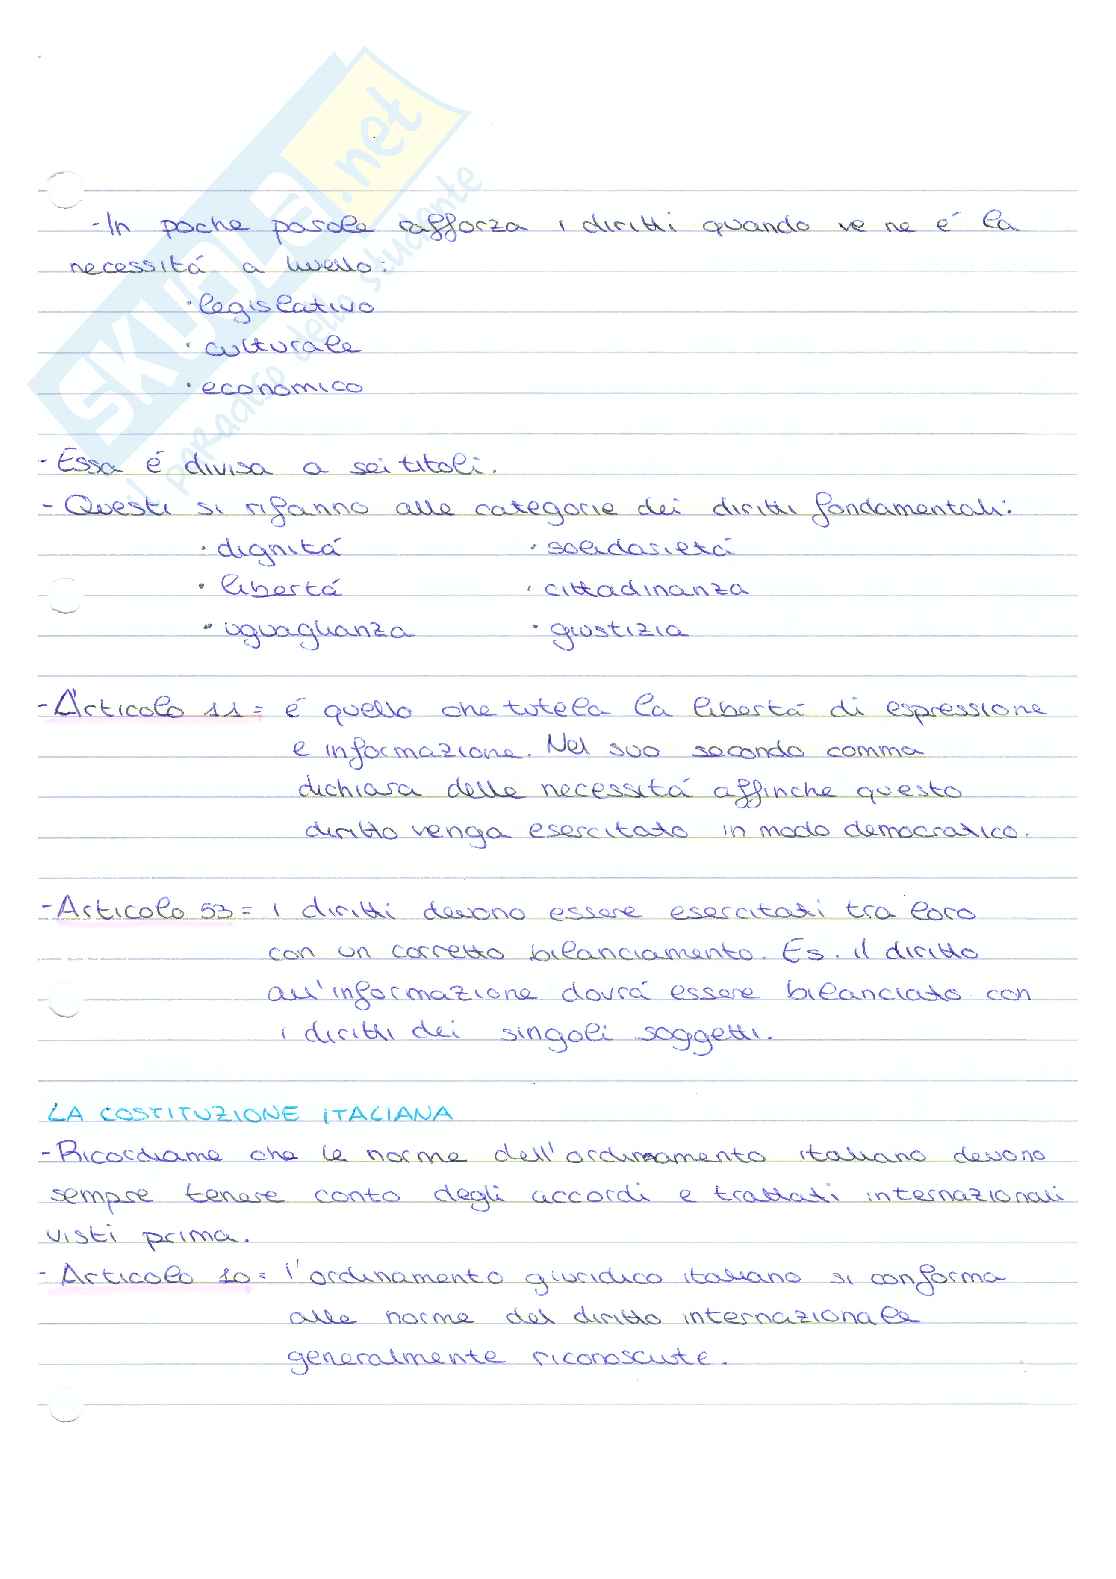 SKUOLA.net
il paradiso dello studente
-In poche parole rafforza i diritti quando ve ne é la
necessitá a livello:
· legislativo
· culturale
· economico
-Essa é divisa a sei titoli.
- Questi si rifanno alle categorie dei diritti fondamentali:
· dignitá · solidarietá
· libertá · cittadinanza
· uguaglianza · giustizia
-Articolo 11 = é quello che tutela la libertá di espressione
e informazione. Nel suo secondo comma
dichiara delle necessitá affinche questo
diritto venga esercitato in modo democratico.
-Articolo 53 = i diritti devono essere esercitati tra loro
con un corretto bilanciamento. Es. il diritto
all'informazione dovrá essere bilanciato con
i diritti dei singoli soggetti.
LA COSTITUZIONE ITALIANA
-Ricordiamo che le norme dell'ordinamento italiano devono
sempre tenere conto degli accordi e trattati internazionali
visti prima.
- Articolo 10 = l'ordinamento giuridico italiano si conforma
alle norme del diritto internazionale
generalmente riconosciute.